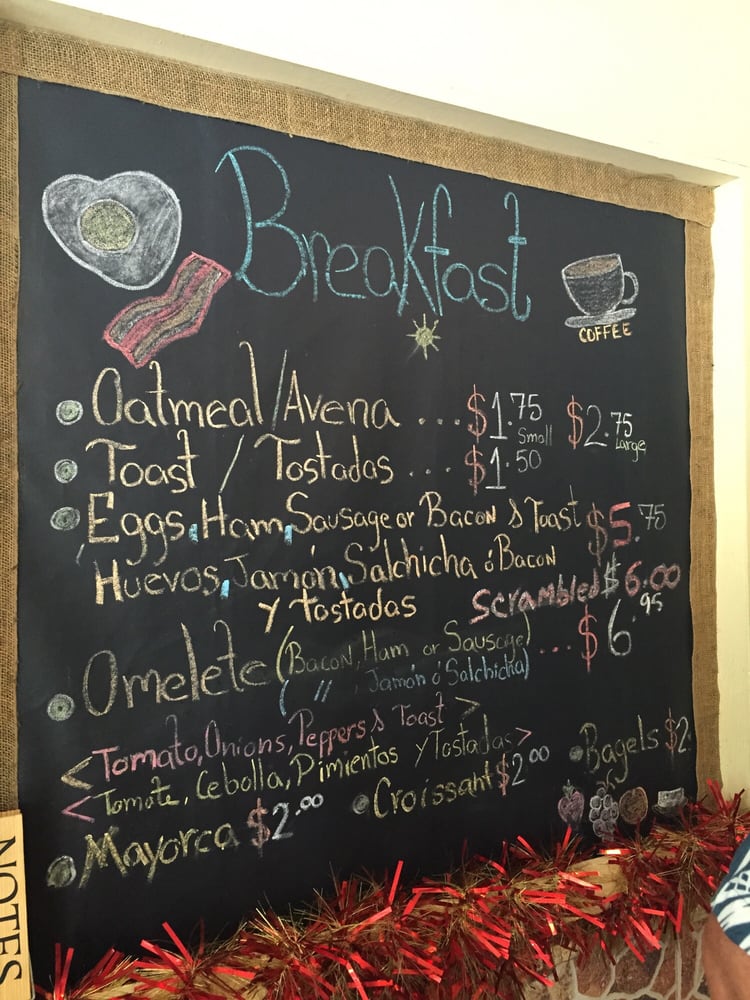 Breakfast
COFFEE
Oatmeal/Avena ... $1.75 Small $2.75 Large
Toast / Tostadas ... $1.50
Eggs, Ham, Sausage or Bacon & Toast $5.75
Huevos, Jamón, Salchicha ó Bacon
y tostadas Scrambled $6.00
Omelete (Bacon, Ham or Sausage) ... $6.95
( " , Jamón ó Salchicha)
<Tomato, Onions, Peppers & Toast>
<Tomate, Cebolla, Pimientos y Tostadas>
Mayorca $2.00
Croissant $2.00
Bagels $2.
NOTES